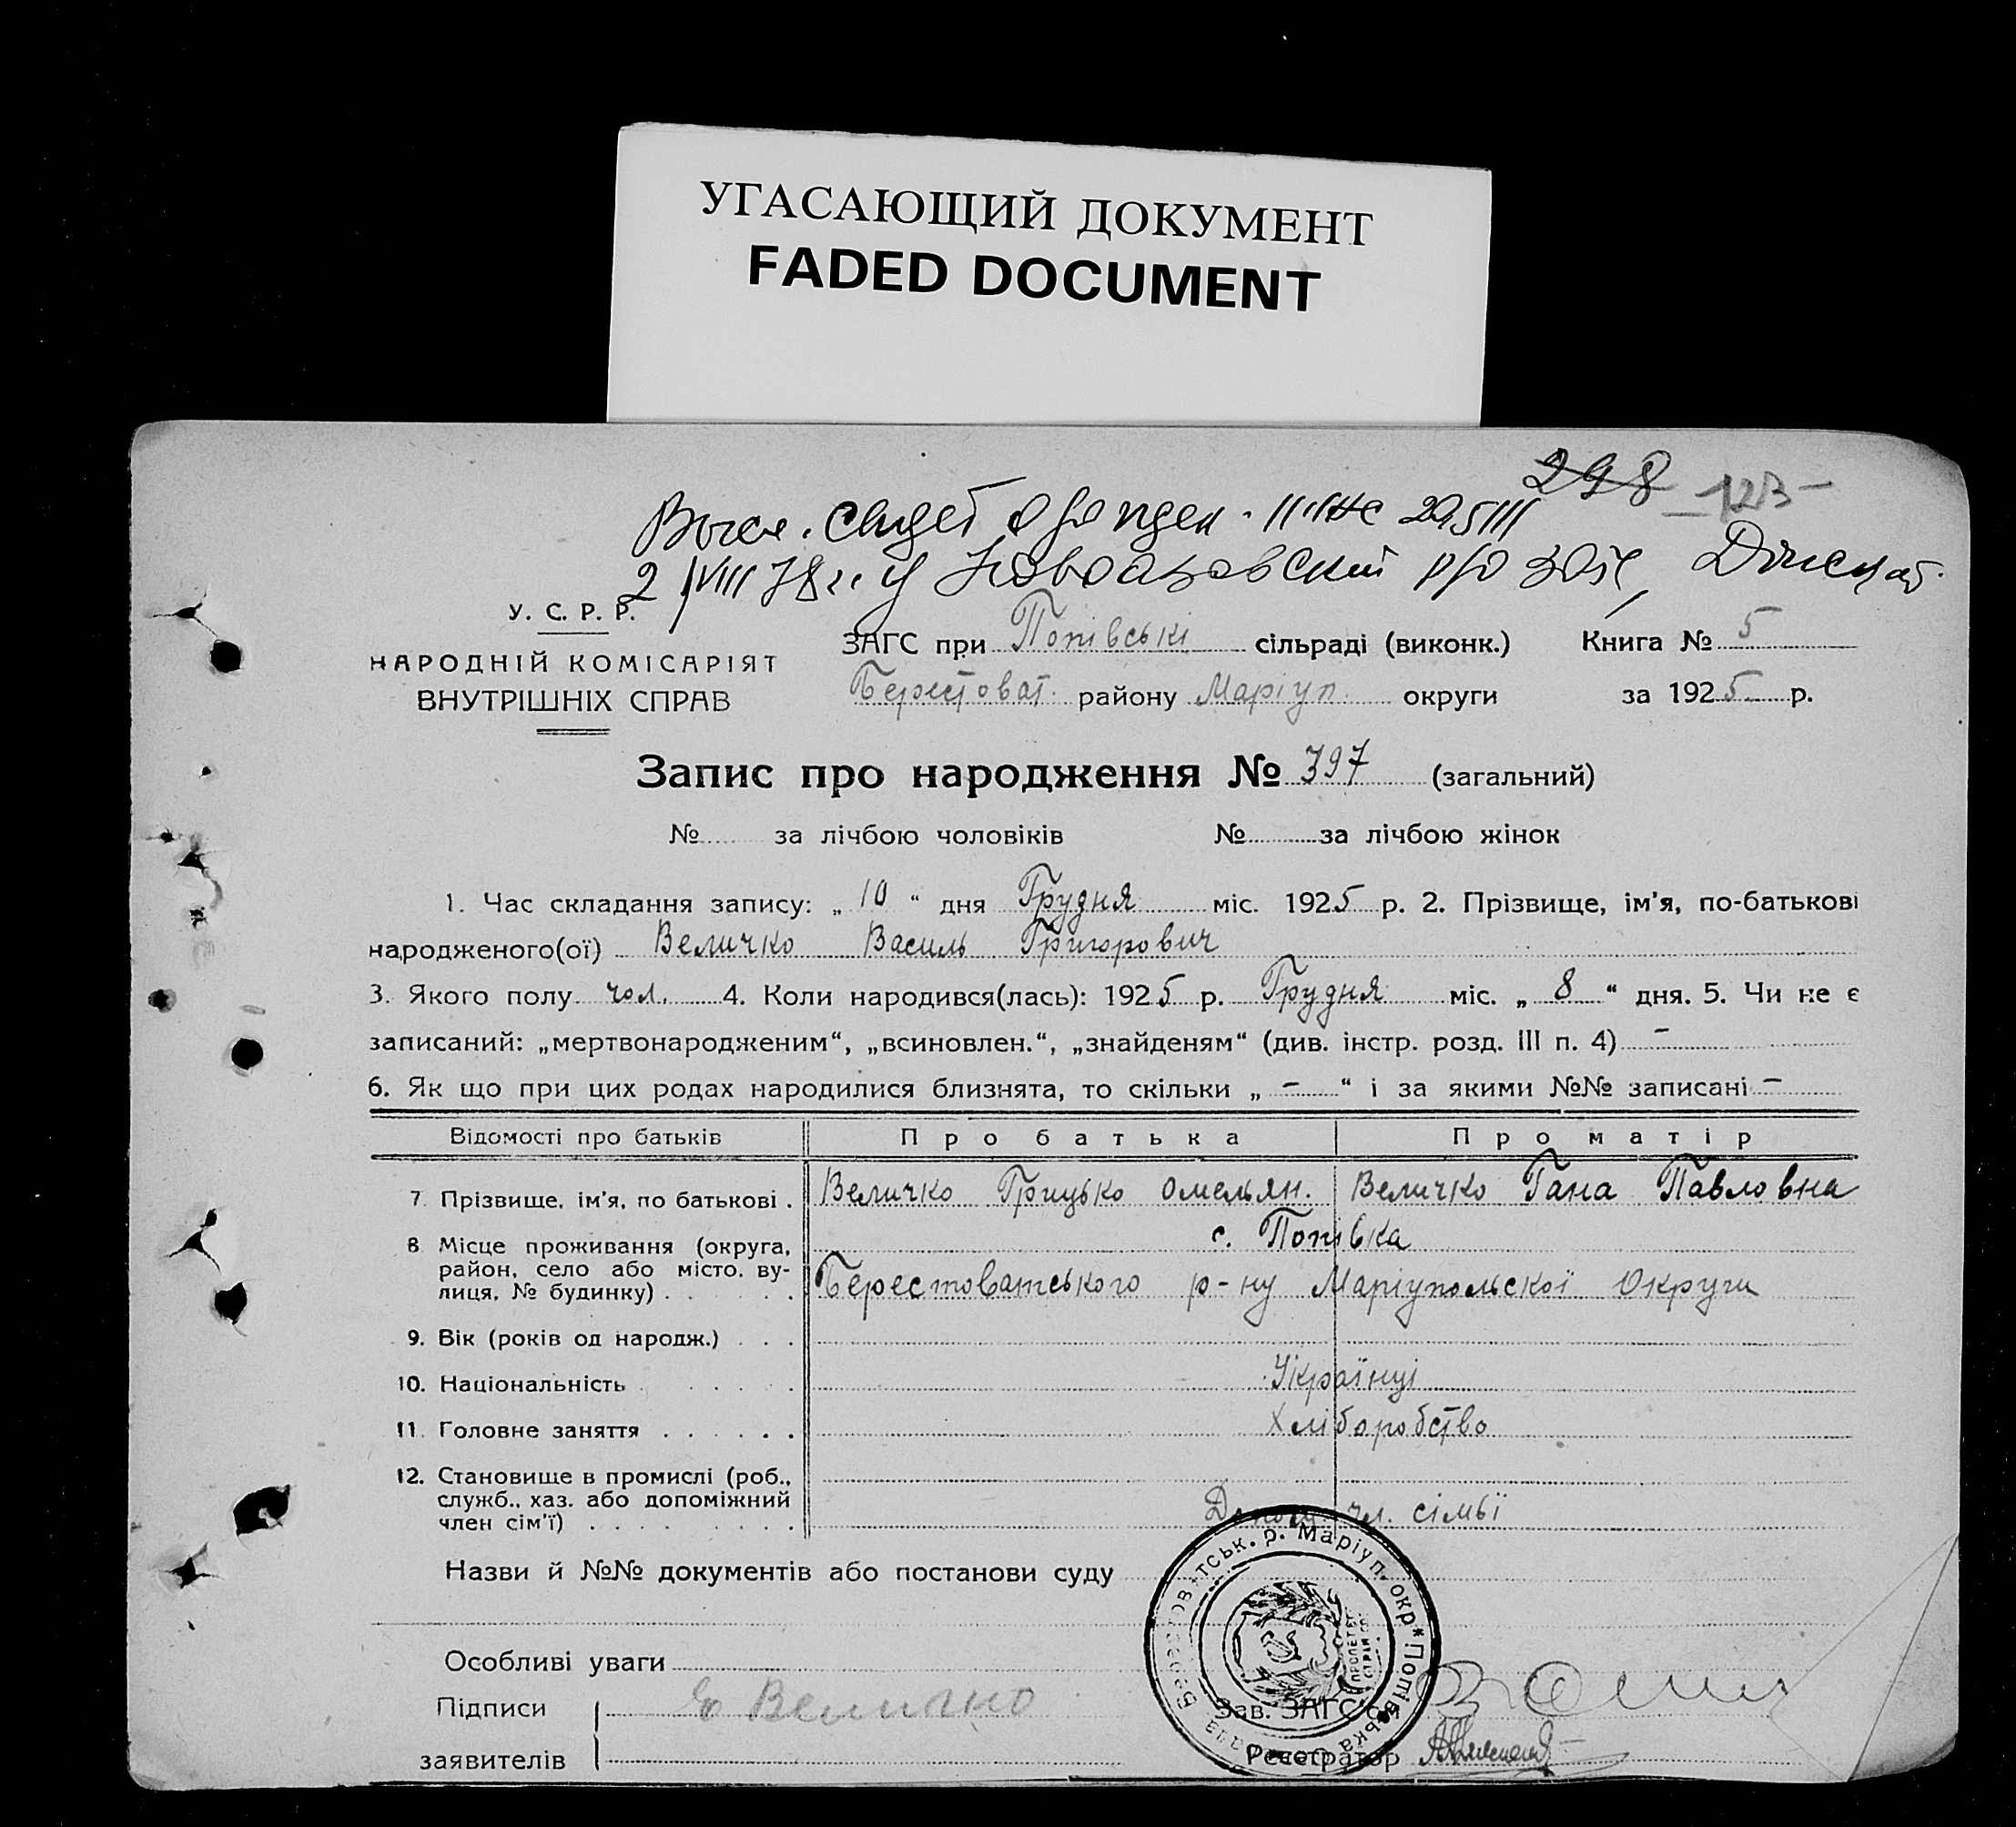 УГАСАЮЩИЙ ДОКУМЕНТ
FADED DOCUMENT
298 123 -
2/VIII 78 г. Новоазовский р/о
У. С. Р. Р.
НАРОДНІЙ КОМІСАРІЯТ
ВНУТРІШНІХ СПРАВ
ЗАГС при Попівські сільраді (виконк.) Книга № 5
Берестоват. району Маріуп. округи за 1925 р.
Запис про народження № 397 (загальний)
№ за лічбою чоловіків № за лічбою жінок
1. Час складання запису: „ 10 “ дня Грудня міс. 1925 р. 2. Прізвище, ім'я, по-батькові
народженого(ої) Величко Василь Григорович
3. Якого полу чол. 4. Коли народився(лась): 1925 р. Грудня міс. „ 8 “ дня. 5. Чи не є
записаний: „мертвонародженим“, „всиновлен.“, „знайденям“ (див. інстр. розд. III п. 4) -
6. Як що при цих родах народилися близнята, то скільки „ - “ і за якими №№ записані -
Відомості про батьків Про батька Про матір
7. Прізвище, ім'я, по батькові . Величко Грицько Омельян. Величко Гана Павловна
8 Місце проживання (округа, с. Попівка
район, село або місто, ву-
лиця, № будинку) . . . . . . Берестоватського р-ну Маріупольскої Округи
9. Вік (років од народж.) . . .
10. Національність . . . . . Українці
11. Головне заняття . . . . . . Хліборобство
12. Становище в промислі (роб.,
служб., хаз. або допоміжний
член сім'ї) . . . . . . . . . чл. сімьї
Назви й №№ документів або постанови суду
Берестоватськ. р. Маріуп. окр * Попівська
Особливі уваги
Підписи Величко Зав. ЗАГС'ом
заявителів Реєстратор